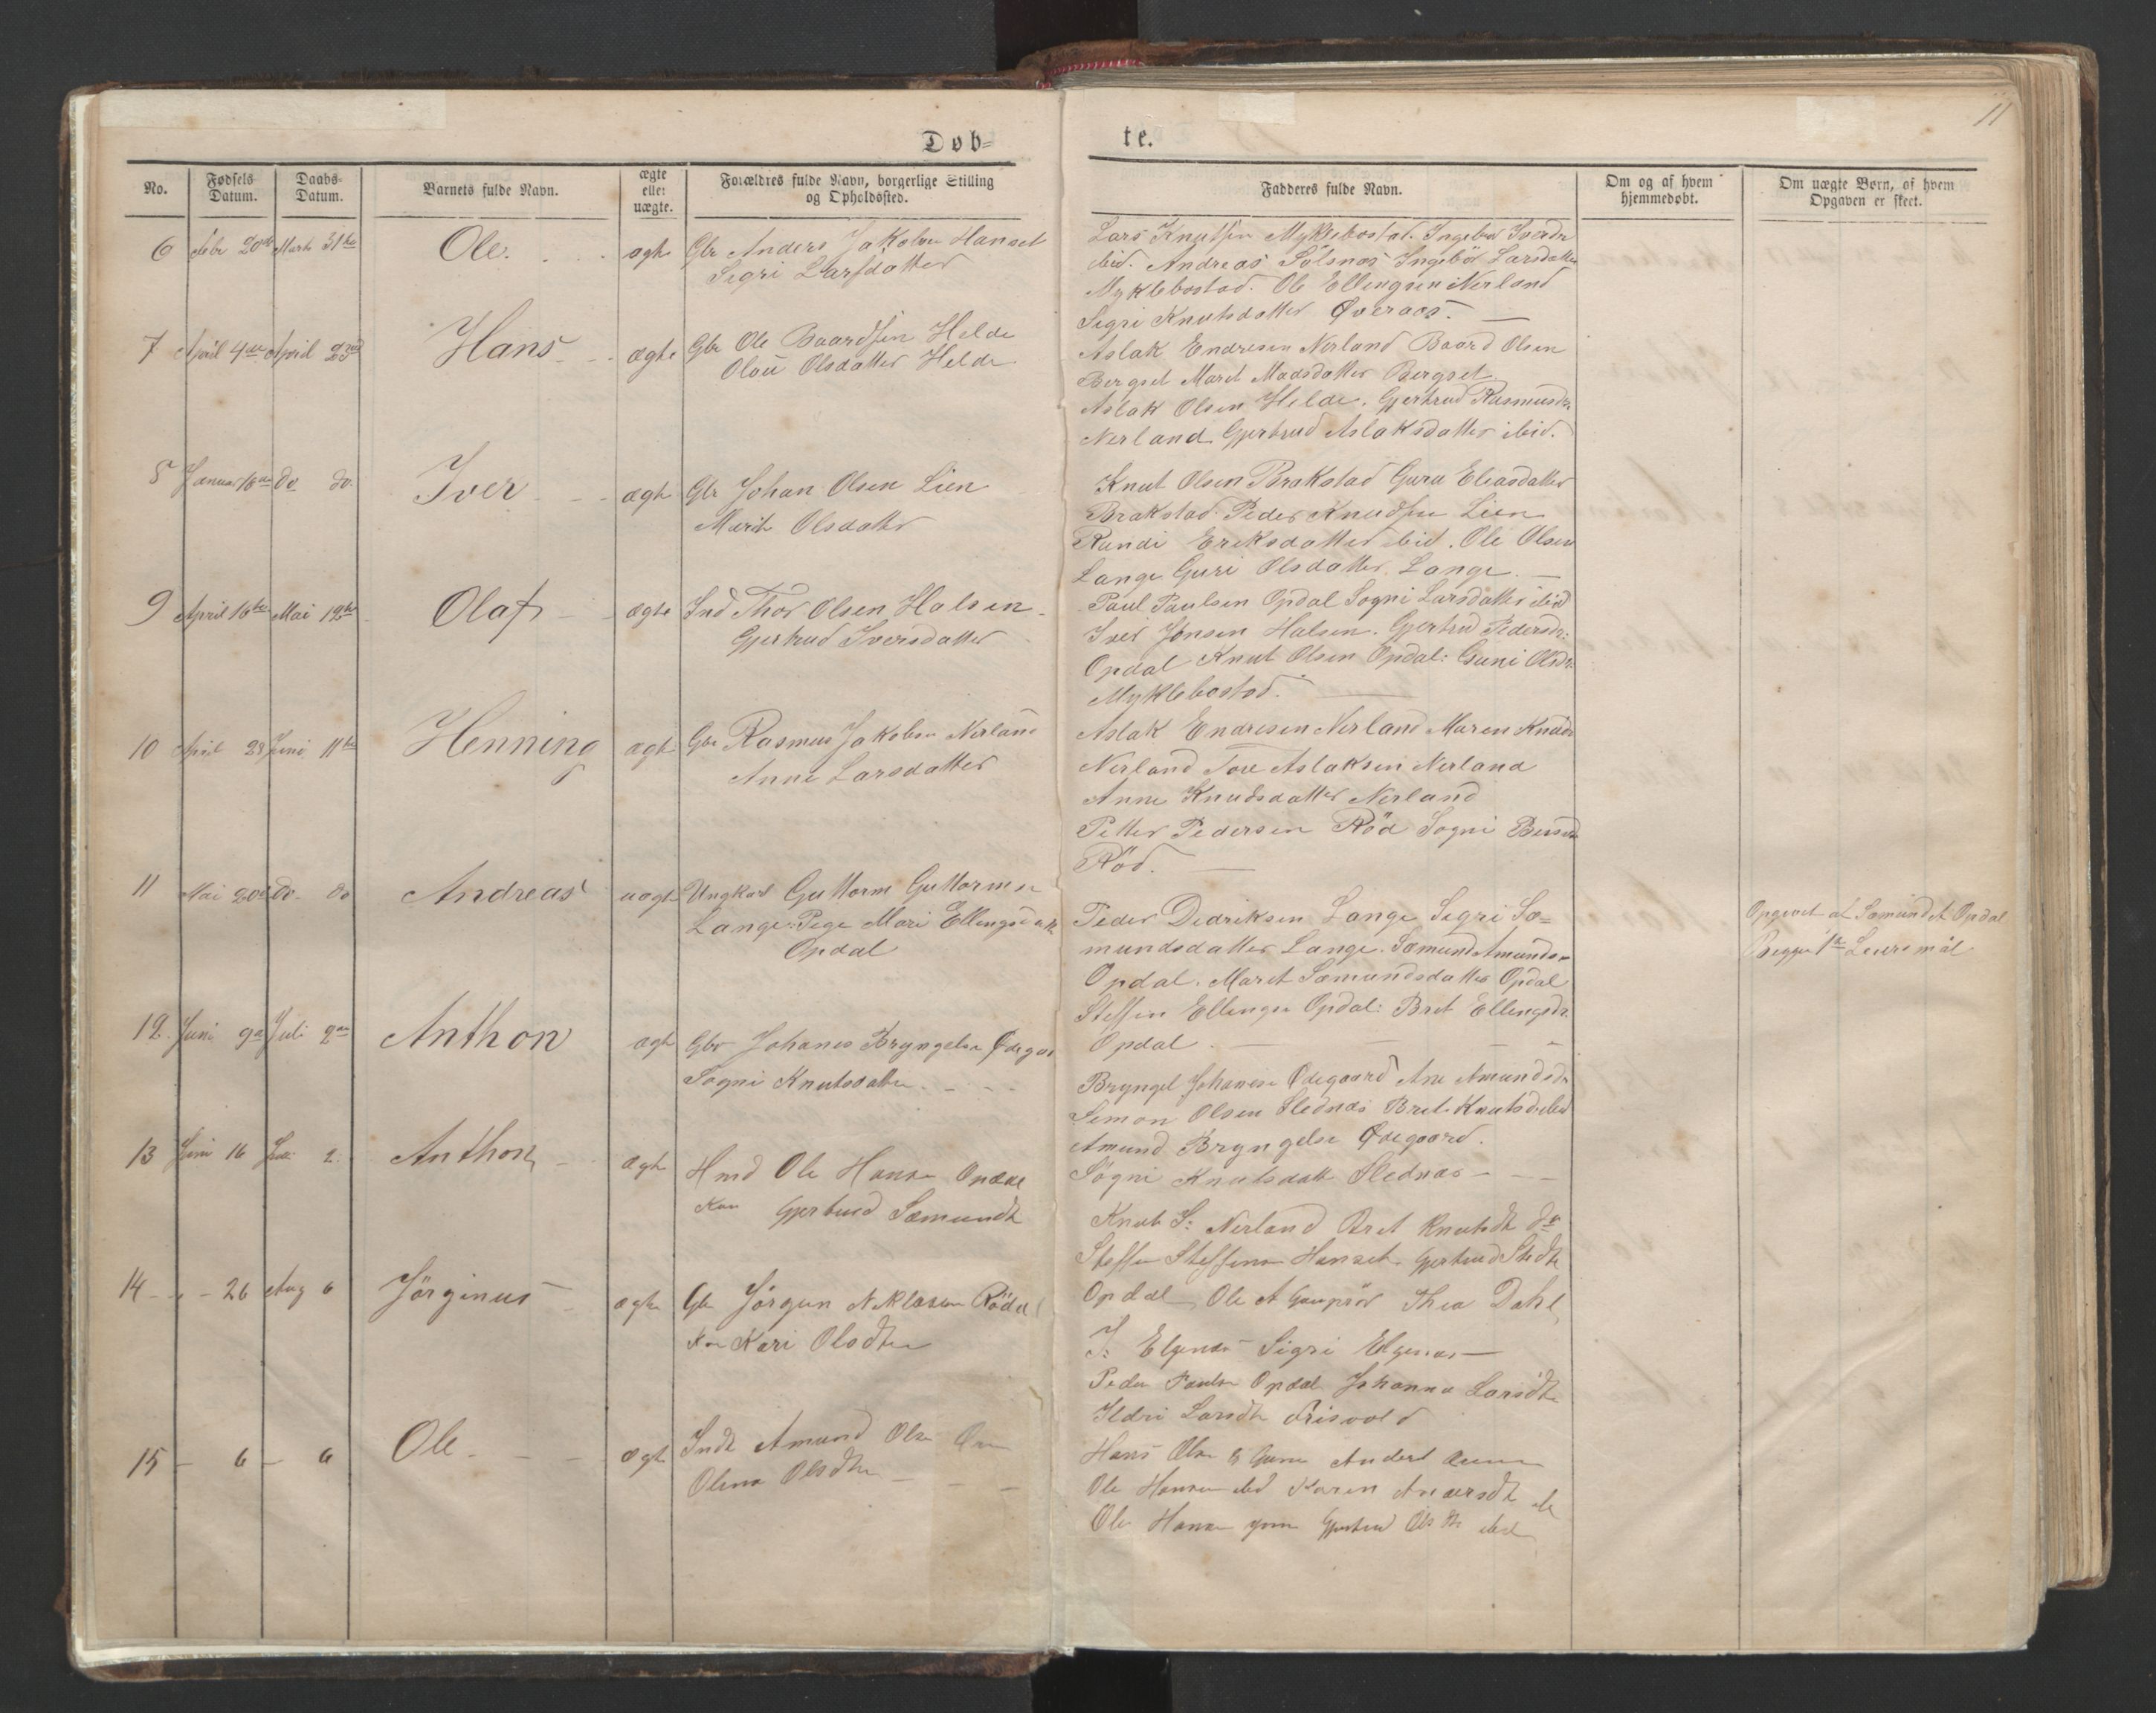 11
Døb-
te.
No.
Fødsels Datum.
Daabs-Datum.
Barnets fulde Navn.
ægte eller uægte.
Forældres fulde Navn, borgerlige Stilling og Opholdssted.
Fadderes fulde Navn.
Om og af hvem hjemmedøbt.
Om uægte Børn, of hvem Opgaven er skeet.
6 Febr 20de Marts 31te Ole ægte Gbr Anders Jakobsen Hanset
Sigri Larsdatter
Lars Knutsen Myklebostad. Ingebor Iversdr
ibid. Andreas Sølsnæs Ingebor Larsdatter
Myklebostad. Ole Ellingsen Nerland
Sigri Knutsdatter Øveraas.
7 April 4de April 23 Hans ægte Gbr Ole Baardsen Helde
Olau Olsdatter Helde
Aslak Endresen Nerland Baard Olsen
Bergset Maret Madsdatter Bergset
Aslak Olsen Helde. Gjertrud Rasmusdr
Nerland Gjertrud Aslaksdatter ibid.
8 Januar 16de do do. Iver ægte Gbr Johan Olsen Lien
Marit Olsdatter
Knut Olsen Brakstad Guru Eliasdatter
Brakstad. Peder Knudsen Lien
Randi Eriksdatter ibid. Ole Olsen
Lange Guri Olsdatter Lange.
9 April 16de Mai 19de Olaf ægte Ind Thor Olsen Halsen
Gjertrud Iversdatter
Paul Paulsen Opdal Sogni Larsdatter ibid
Iver Jonsen Halsen. Gjertrud Pedersdr:
Opdal Knut Olsen Opdal: Guni Olsdr:
Myklebostad.
10 April 28 Juni 11te Henning ægte Gbr Rasmus Jakobsen Nerland
Anne Larsdatter
Aslak Endresen Nerland Maren Knuds
Nerland Tore Aslaksen Nerland
Anne Knudsdatter Nerland
Petter Pedersen Röd Sogni
Röd.
11 Mai 20de do. do Andreas uægte Ungkarl Guttorm Guttormsen
Lange. Pige Mari Ellingsdatt
Opdal
Peder Dedriksen Lange Sigri Sæ=
mundsdatter Lange. Sæmund Amunds
Opdal. Marit Sæmundsdatter Opdal
Steffen Ellingsen Opdal: Bret Ellingsdr.
Opdal.
Opgivet af Sæmund A Opdal
Begges 1ste Leiersmål.
12. Juni 9de Juli 2den Anthon ægte Gbr Johanes Bryngelsen Ødegaar
Sogni Knutsdatter
Bryngel Johanesen Ødegaard Ane Amundsdr
Simon Olsen Slednæs Bret Knutsdr ibid
Amund Bryngelsen Ødegaard.
Sögni Knutsdatt Slednæs
13 Juni 16 Juli 2. Anthon ægte Hmd Ole Hansen Opdal
Kon Gjertrud Sæmundt
Knut S: Nerland Bret Knutsdt do
Steffen Steffensen Hanset Gjertrud Stdt
Opdal Ole A Gaupsör Thea Dahl
14 - - 26 Aug 6 Jörginus ægte Gbr Jörgen Niklasen Röddal
Kon Kari Olsdtr
J: Elgenæs Sigri Elgenæs
Peder Paulsen Opdal Johanna Larsdtr
Ildri Larsdtr Frisvold
15 - 6 - 6 Ole ægte Indt Amund Olsen
Olina Olsdtr
Hans Olsen Guru Anders
Ole Hansen ibid Karen Andersdt
Ole Hansen Gjertrud Olsdtr ibid